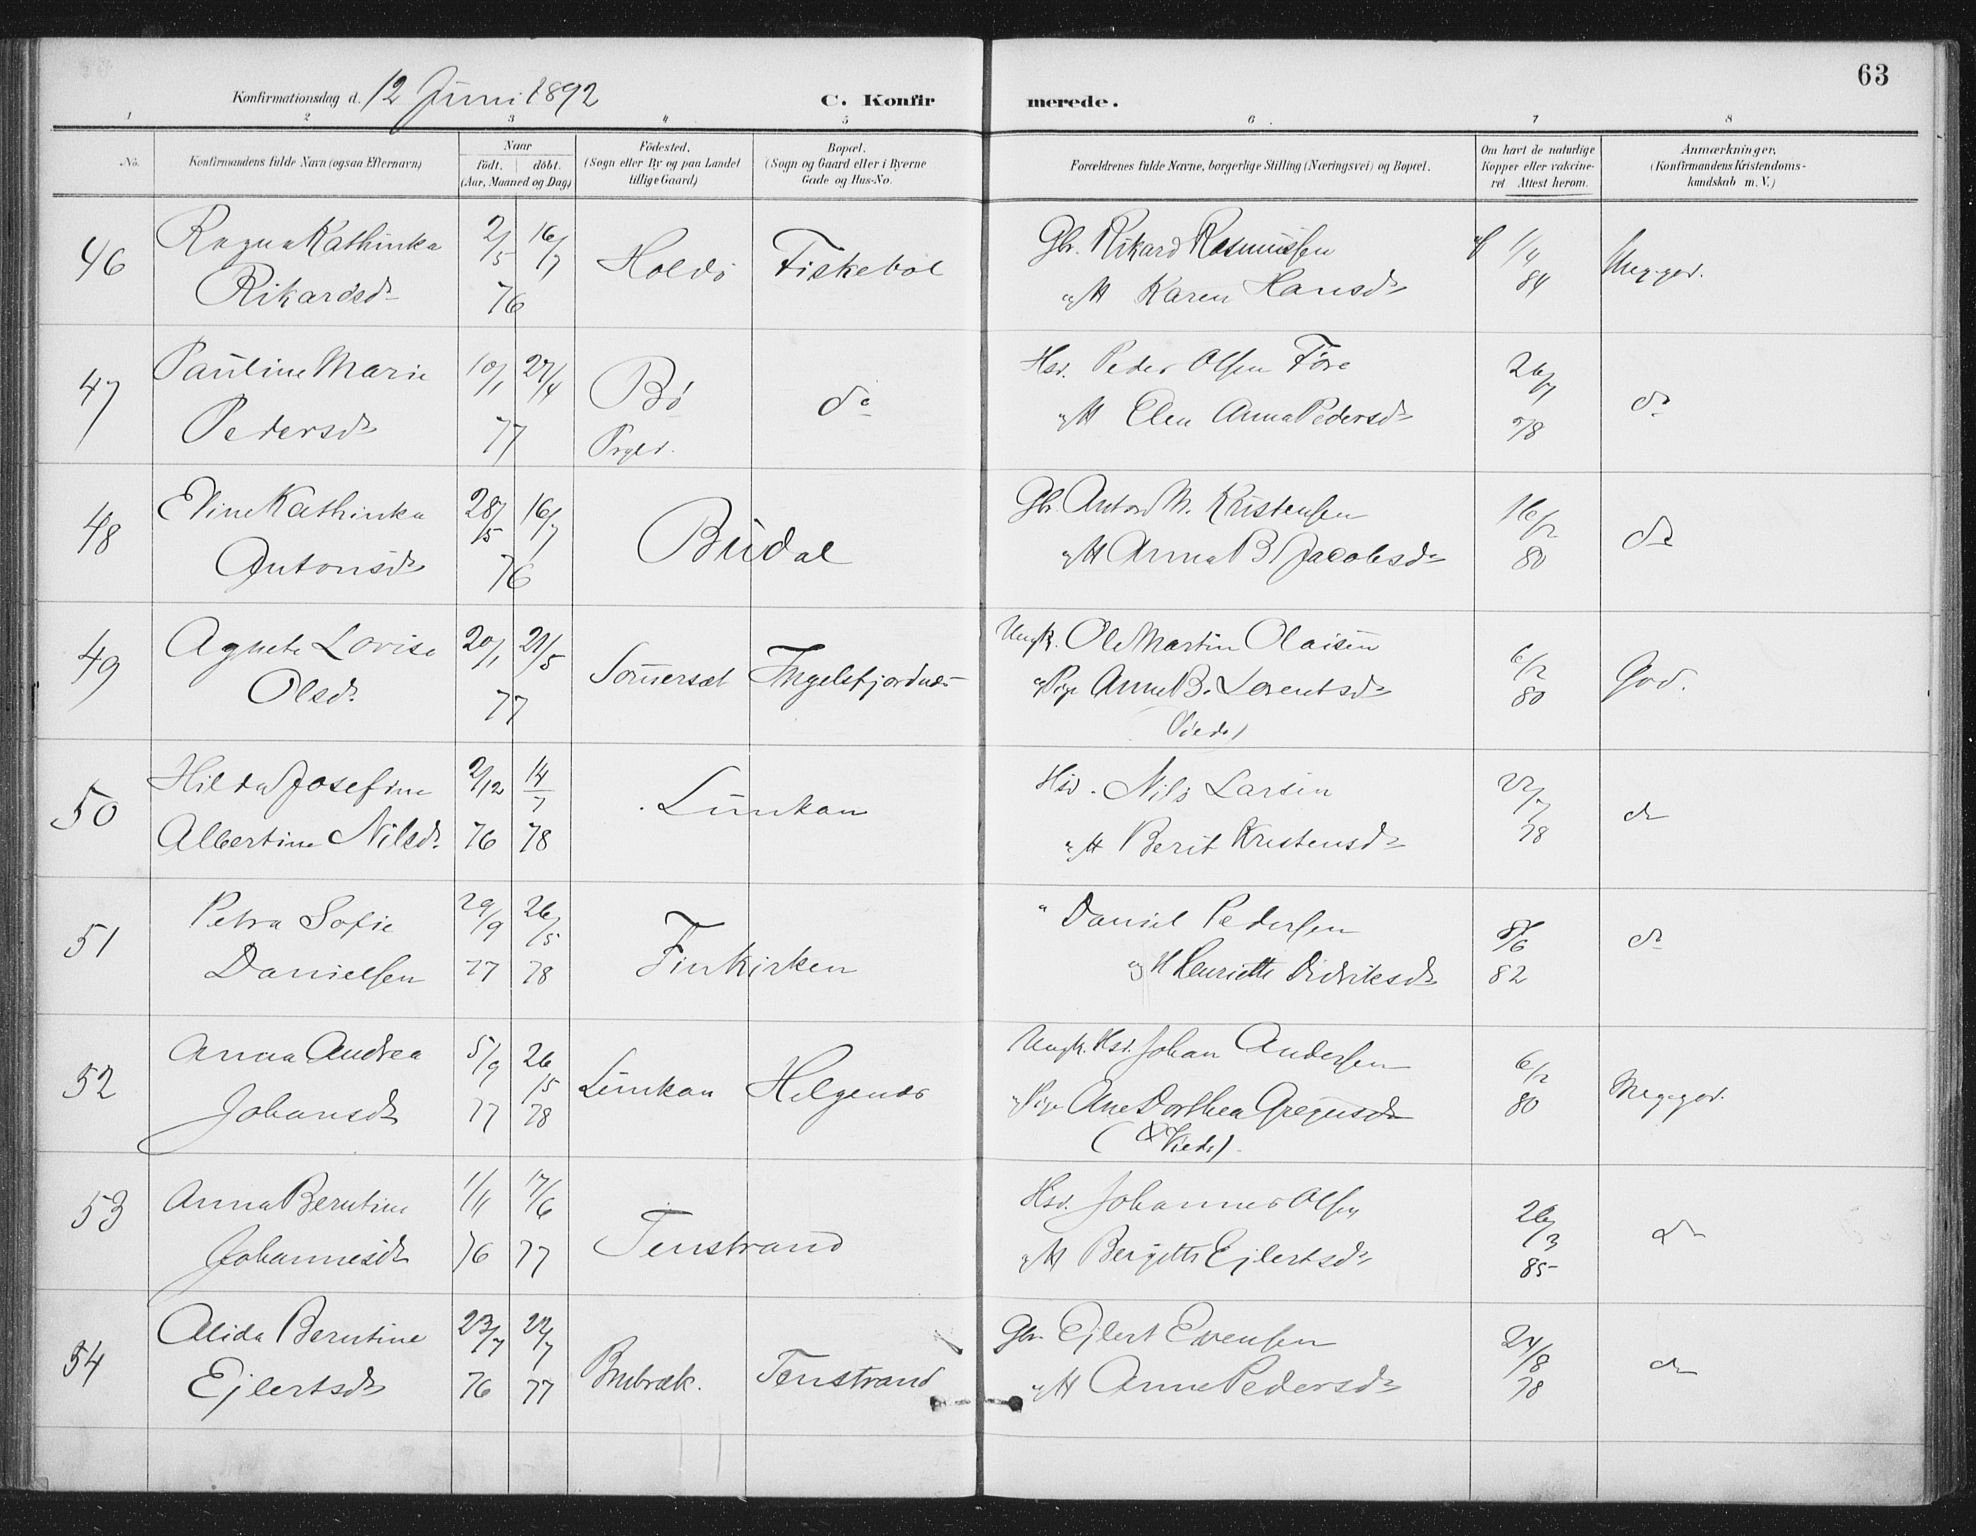 63
Konfirmationsdag d. 12 Juni 1892
C. Konfirmerede.
1 2 3 4 5 6 7 8
No. Konfirmandens fulde Navn (ogsaa Efternavn) Naar født. døbt. (Aar, Maaned og Dag) Fødested. (Sogn eller By og paa Landet tillige Gaard) Bopæl. (Sogn og Gaard eller i Byerne Gade og Hus-No. Forældrenes fulde Navne, borgerlige Stilling (Næringsvei) og Bopæl. Om havt de naturlige Kopper eller vakcineret Attest herom. Anmærkninger, (Konfirmandens Kristendomskundskab m. V.)
46 Ragna Kathinka 2/5 16/7 Holdø Fiskebøl Gbr. Rikard Rasmussen 1/4 Meg. god.
Rikardsdr 76 og H Karen Hansdr 84
47 Pauline Marie 10/1 27/4 Bø do Hsd. Peder Olsen Føre 26/7 do
Pedersdr 77 Prgld. og H Elen Anna Pedersdr 78
48 Eline Kathinka 28/5 16/7 Budal Gbr Anton M. Kristensen 16/2 do
Antonsdr 76 og H Anna B. Jacobsdr 80
49 Agnete Lovise 20/1 21/5 Sommersæt Ingelsfjordnes Ungk. Ole Martin Olaisen 6/2 God.
Olsdr 77 og Pige Anne B. Lorentsdr 80
50 Hilda Josefine 2/12 14/7 Lunkan Hsd. Nils Larsen 22/7 do
Albertine Nilsdr. 76 78 og H Berit Kristensdr 78
51 Petra Sofie 29/9 26/5 Finkirken " Daniel Pedersen 8/6 do
Danielsen 77 78 og H Henriette Didriksdr 82
52 Anna Andrea 5/9 26/5 Lunkan Helgenes Ungk. Hsd. Johan Andersen 6/2 Meg. god.
Johansdr 77 78 og Pige Ane Dorthea Gregusdr 80
53 Anna Berntine 1/11 17/6 Tenstrand Hsd. Johannes Olsen 26/3 do
Johannesdr 76 77 og H Bergitte Ejlertsdr 85
54 Alida Berntine 23/7 22/7 Brubræk. Tenstrand Gbr. Ejlert Evensen 24/8 do
Ejlertsdr 76 77 og H Anne Pedersdr 78